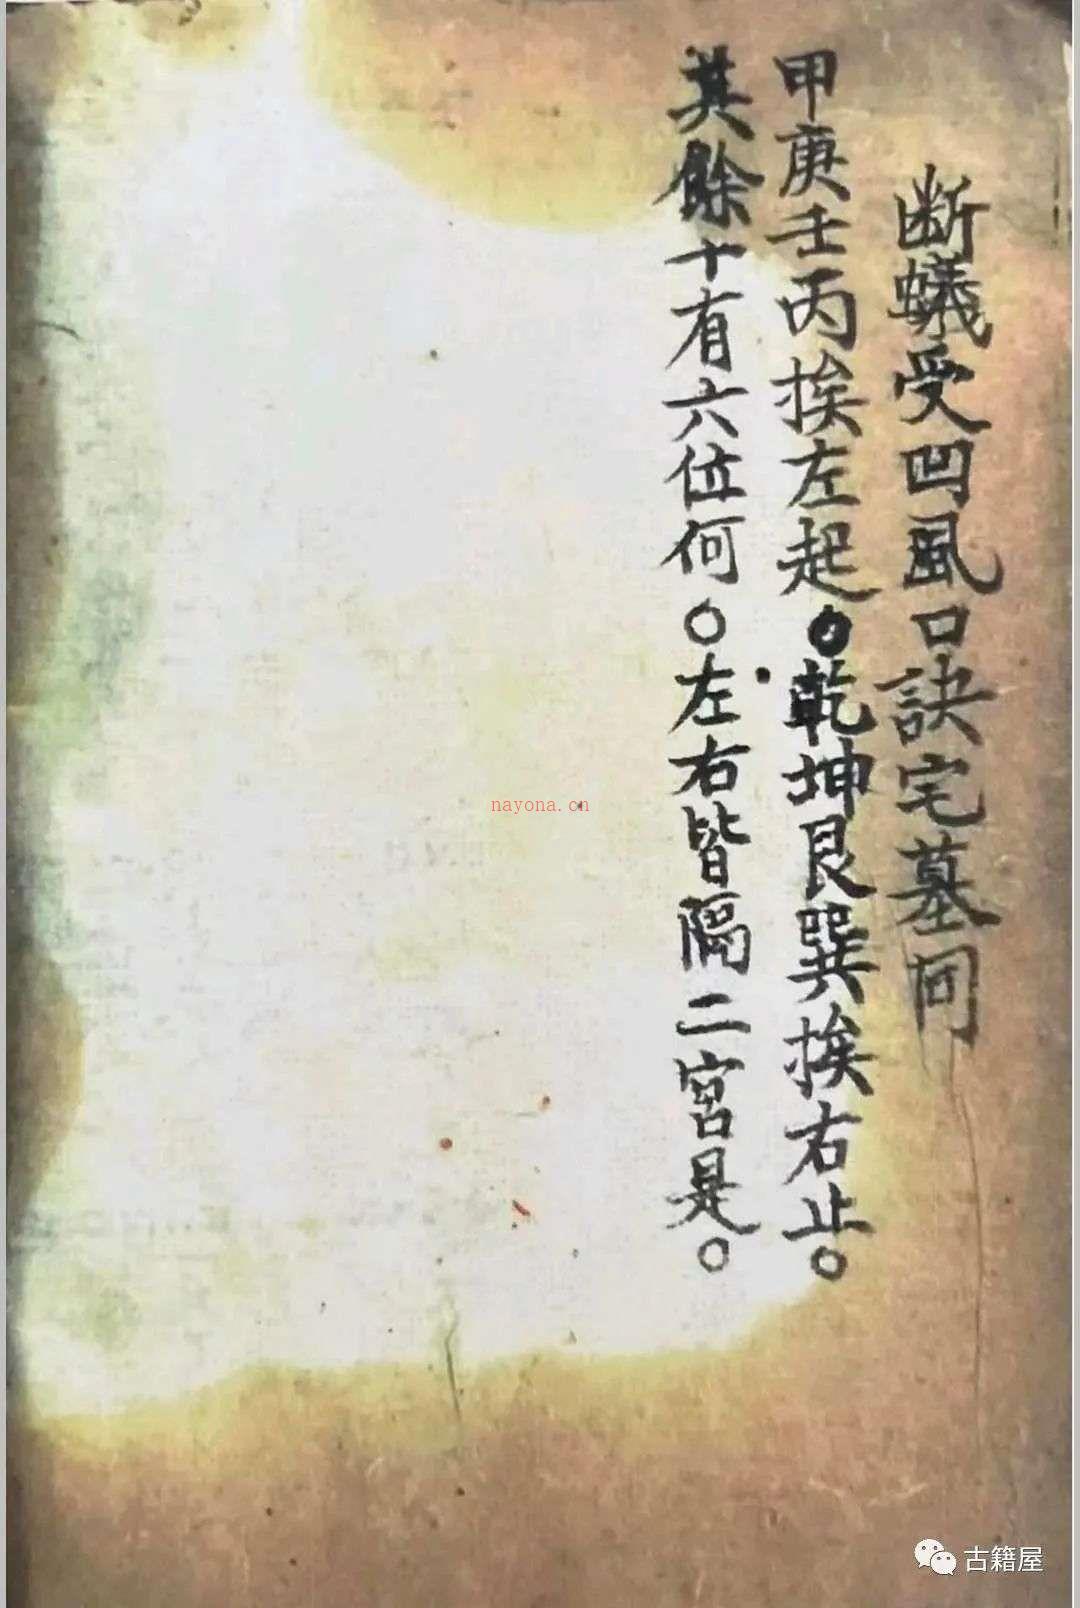 断蟻受凹風口訣宅墓同
甲庚壬丙挨左起。乾坤艮巽挨右止。
其餘十有六位何。左右皆隔二宮是。
nayona.cn
古籍屋